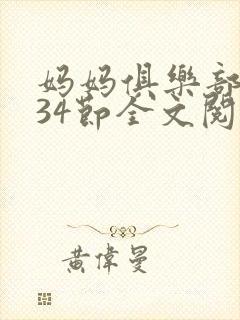 妈妈俱樂部
34節全文閱
黃偉曼